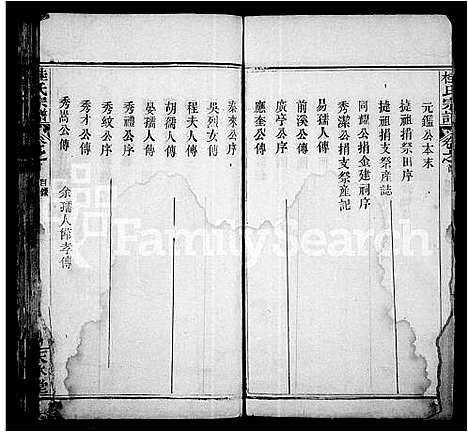 桂氏宗譜
元鑑公本末
捷祖捐祭田序
捷祖捐支祭產誌
同耀公捐金建祠序
秀潔公捐支祭產記
易孺人傳
前溪公傳
廣學公序
應奎公傳
泰來公序
吳烈女傳
程夫人傳
胡孺人傳
晏孺人傳
秀禮公序
秀紋公序
秀才公傳
秀嵩公傳
余孺人節孝傳
桂氏宗譜
目錄
FamilySearch